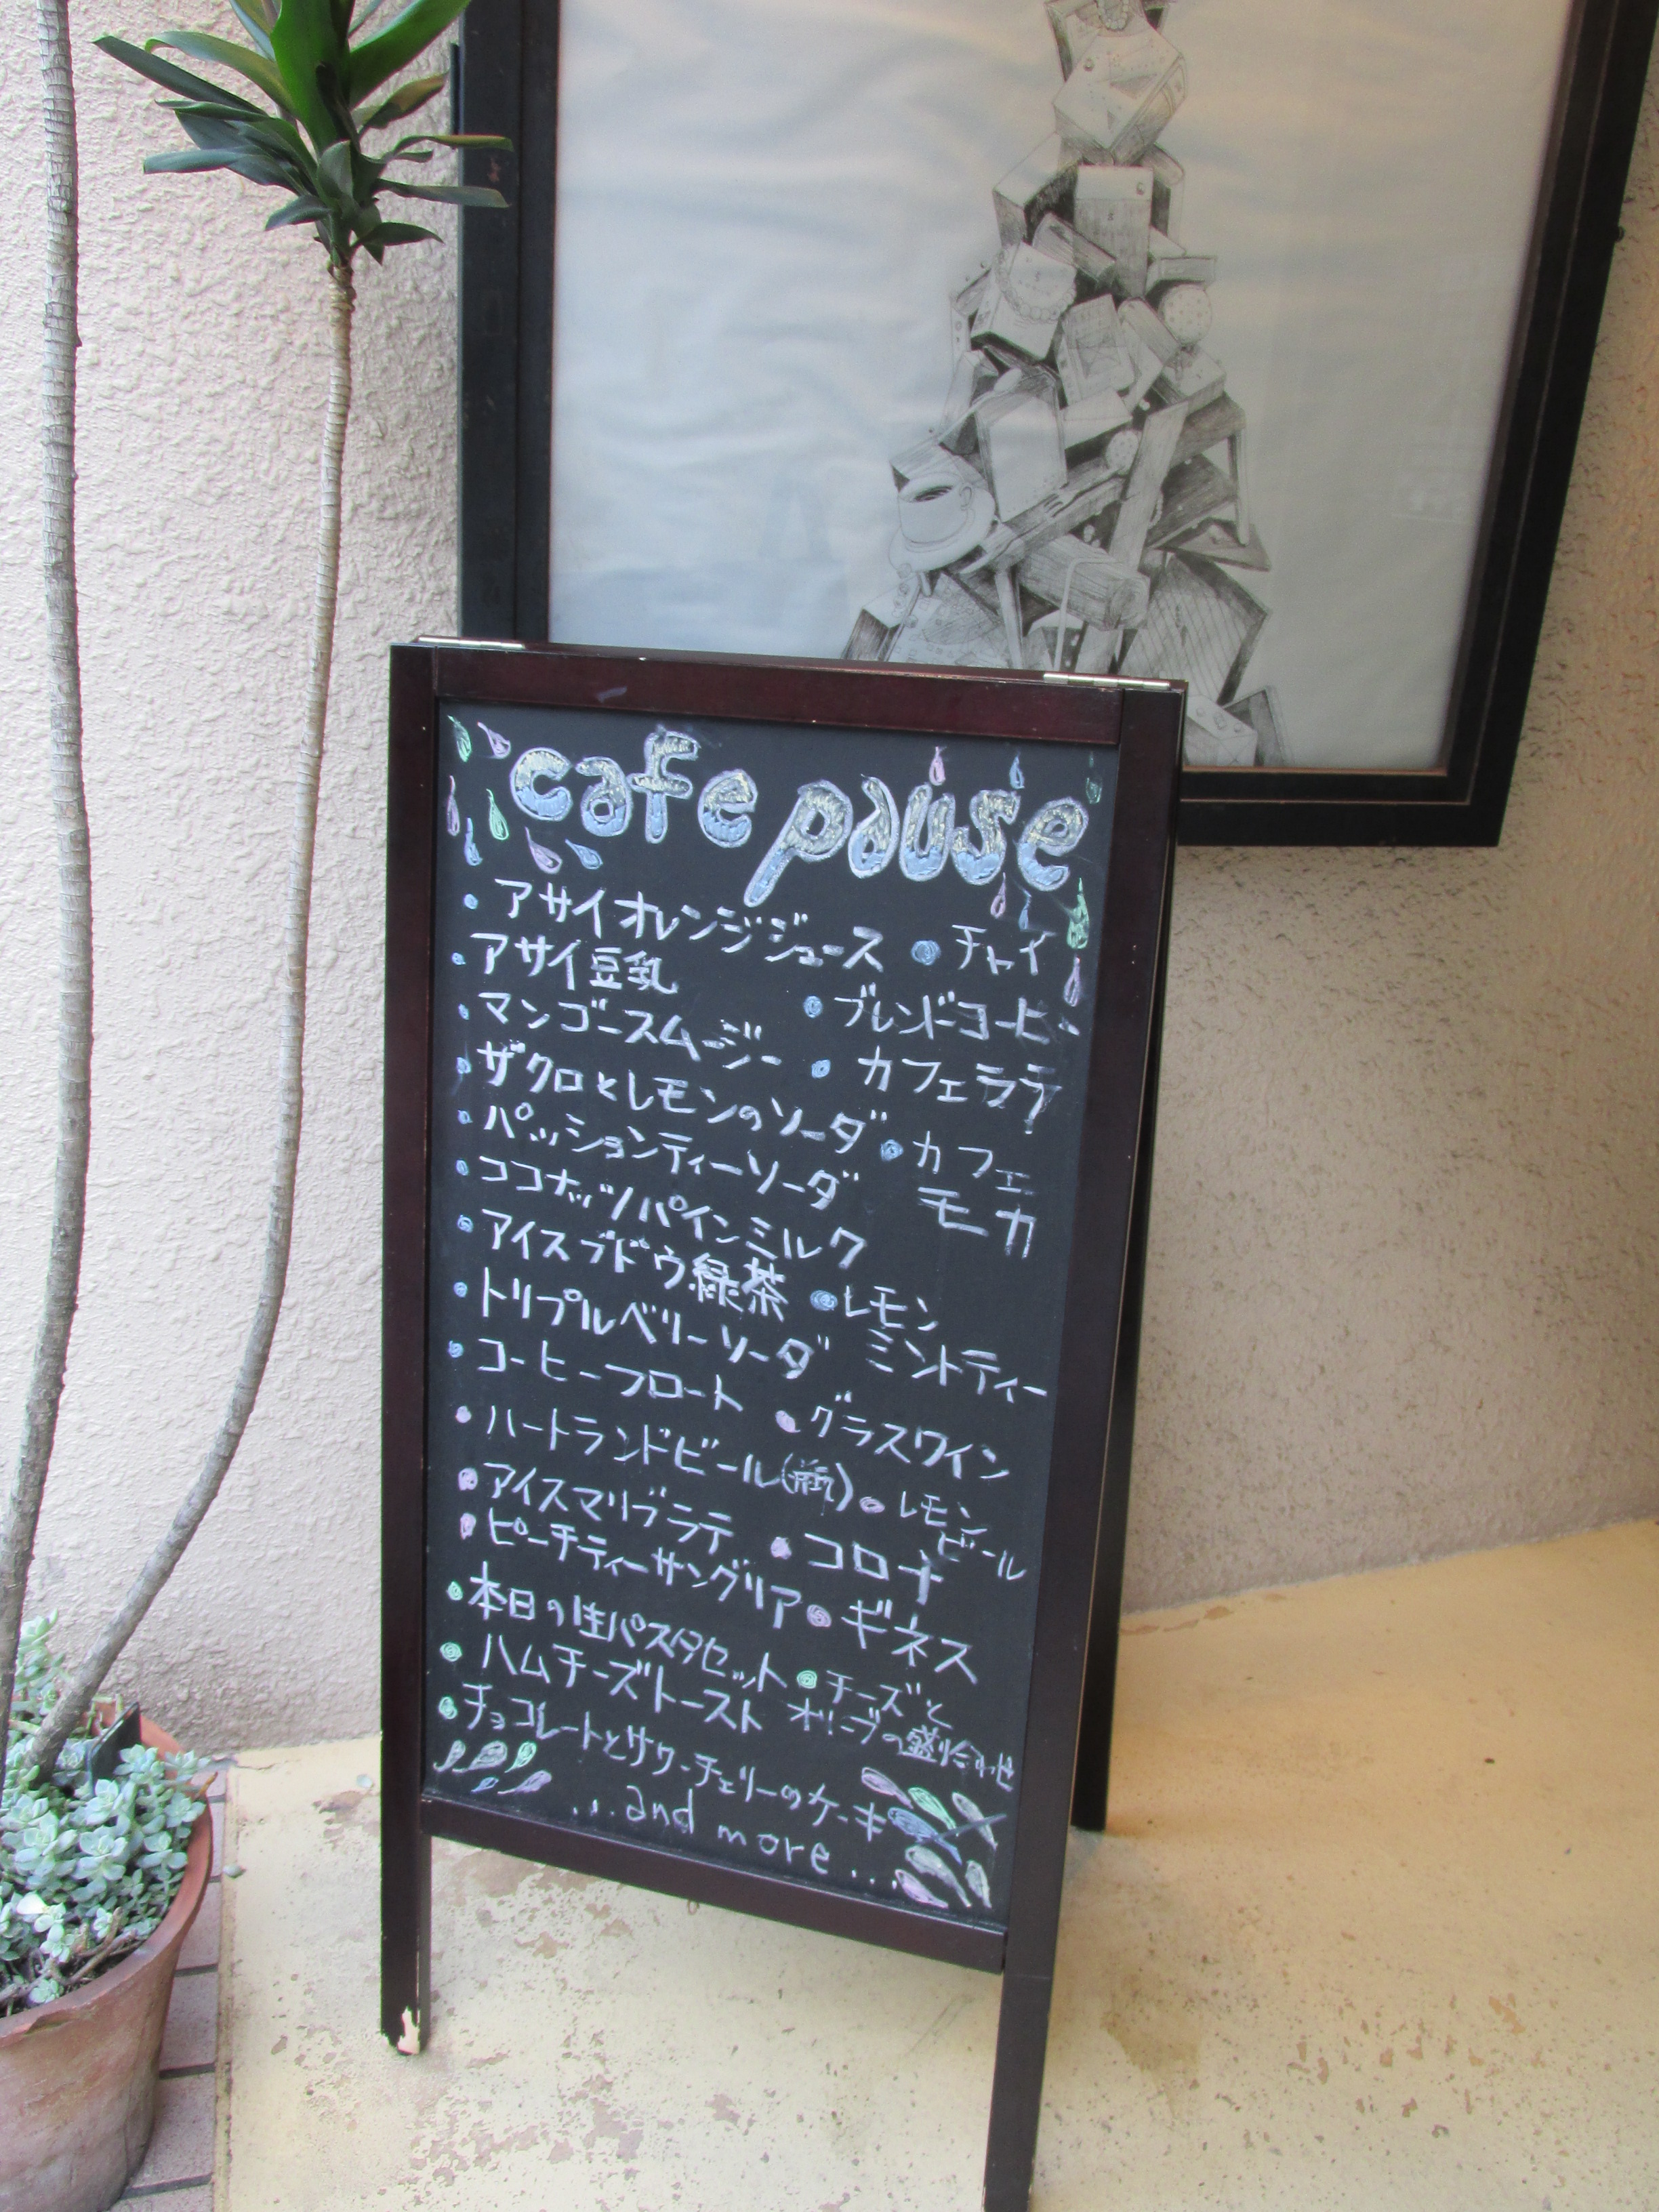 cafe pause
・アサイオレンジジュース ・チャイ
・アサイ豆乳
・ブレンドコーヒー
・マンゴースムージー
・カフェラテ
・ザクロとレモンのソーダ
・カフェ
モカ
・パッションティーソーダ
・ココナッツパインミルク
・アイスブドウ緑茶
・レモン
ミントティー
・トリプルベリーソーダ
・コーヒーフロート
・グラスワイン
・ハートランドビール(瓶)
・レモン
ビール
・アイスマリブラテ
・コロナ
・ピーチティーサングリア
・ギネス
・本日の生パスタセット
・チーズと
オリーブの盛り合わせ
・ハムチーズトースト
・チョコレートとサワーチェリーのケーキ
...and more...